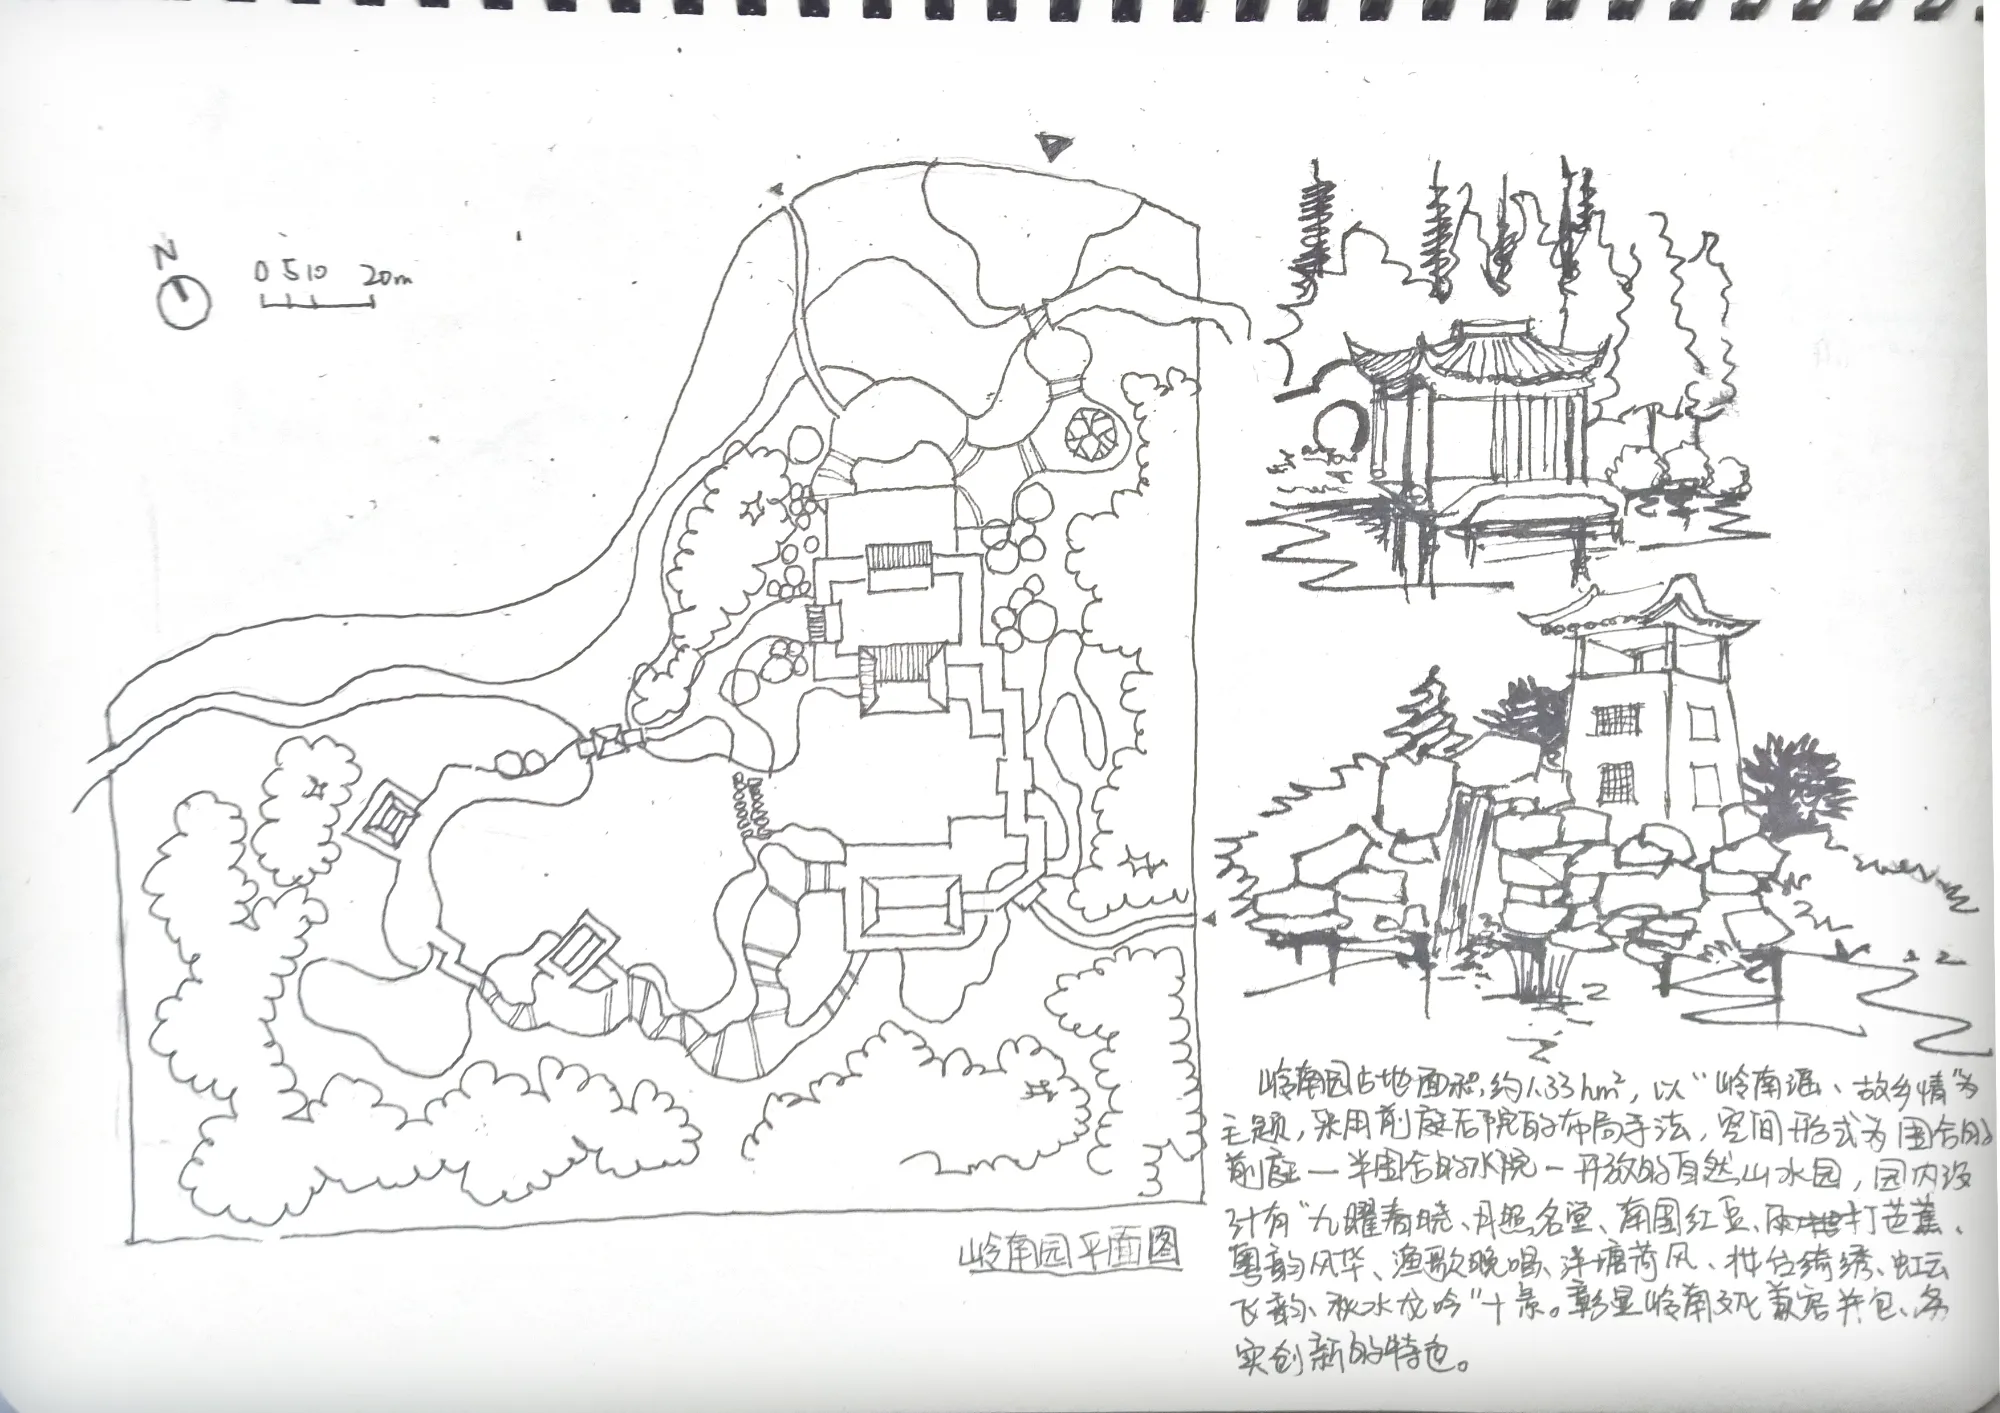 N
0 5 10 20m
岭南园占地面积,约1.33hm²,以"岭南谣、故乡情"为
主题,采用前庭后院的布局手法,空间形式为围合的
前庭—半围合的水院—开放的自然山水园,园内设
计有"九曜春晓、月照名堂、南国红豆、雨打芭蕉、
粤韵风华、渔歌晚唱、泮塘荷风、妆台绮绣、虹云
飞韵、秋水龙吟"十景。彰显岭南文化兼容并包、务
实创新的特色。
岭南园平面图